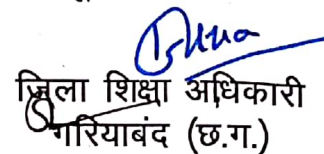 जिला शिक्षा अधिकारी
गरियाबंद (छ.ग.)